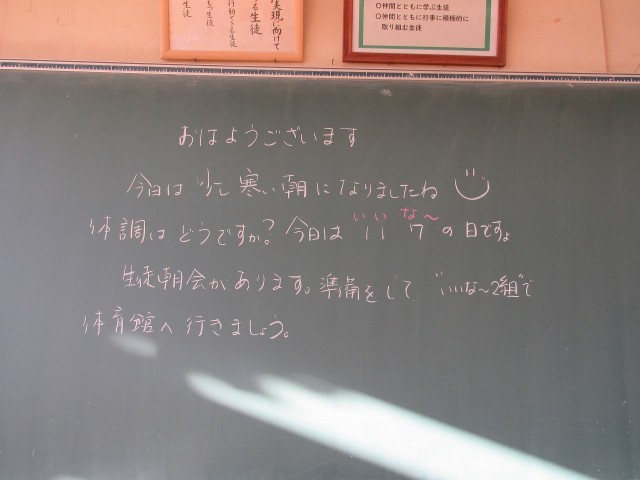 実現に向けて
る生徒
行動できる生徒
生徒
〇仲間とともに学ぶ生徒
〇仲間とともに行事に積極的に
取り組む生徒
おはようございます
今日は 少し 寒い 朝 に なりましたね
体調は どうですか? 今日は 11 7 の 日ですよ
いい な～
生徒朝会があります。準備をして "いいな～2組"で
体育館へ 行きましょう。